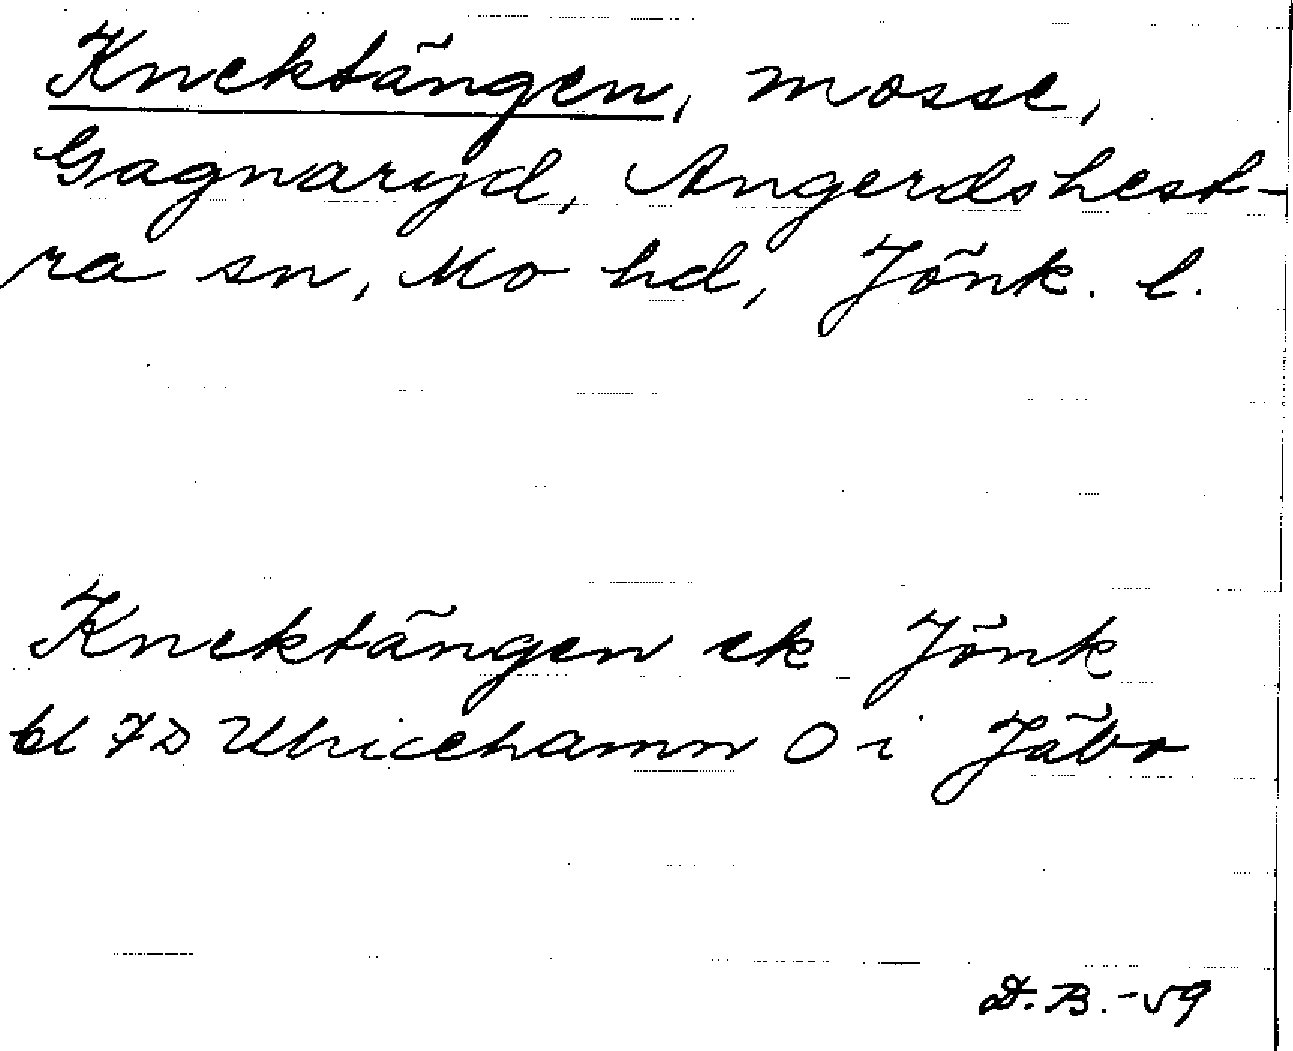 Knektängen, mosse,
Gagnaryd, Angerdshest-
ra sn, Mo hd, Jönk. l.
Knektängen ek Jönk
bl 7D Ulricehamn O i Jäbo
D.B. -59